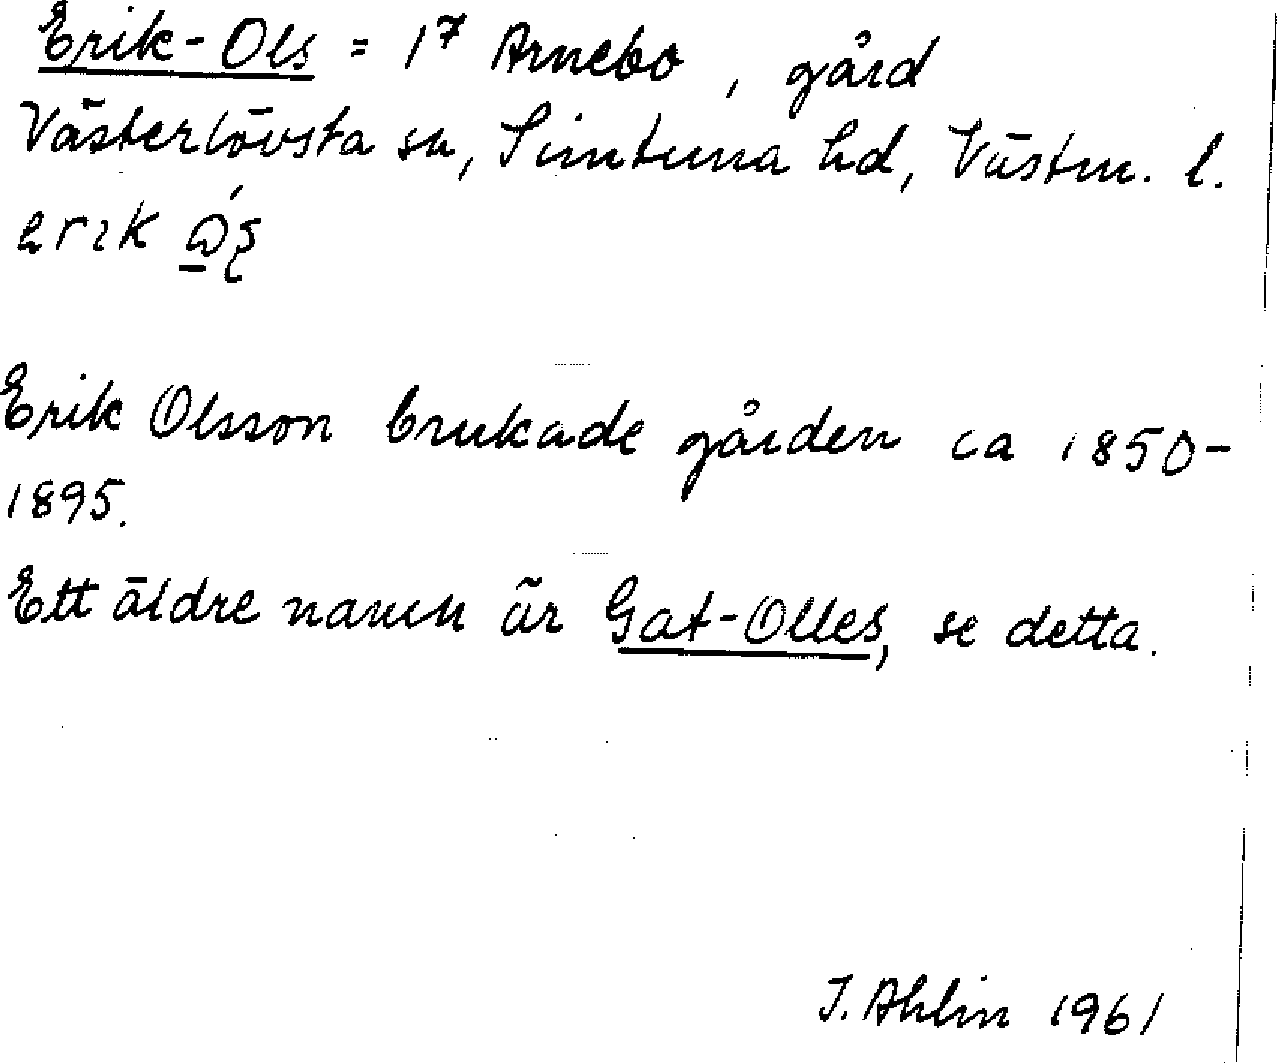 Erik-Ols = 1⁷ Arnebo, gård
Västerlövsta sn, Simtuna hd, Västm. l.
erik
Erik Olsson brukade gården ca 1850-
1895.
Ett äldre namn är Gat-Olles, se detta.
I. Ahlin 1961